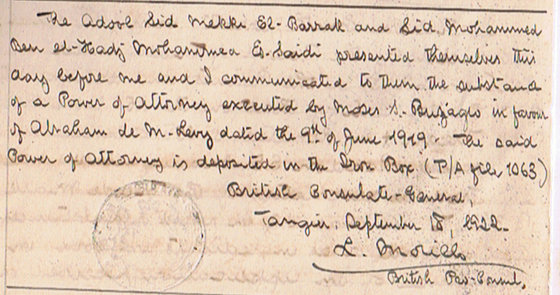 The Adool Sid Mekki El-Barrak and Sid Mohammed
Ben el-Hadj Mohammed Es-Saidi presented themselves this
day before me and I communicated to them the substance
of a Power of Attorney executed by Moses S. Buzaglo in favour
of Abraham de M. Levy dated the 9th of June 1919. The said
Power of Attorney is deposited in the Iron Box (P/A file 1063)
British Consulate-General,
Tangier, September 18, 1922.
British Pro-Consul.